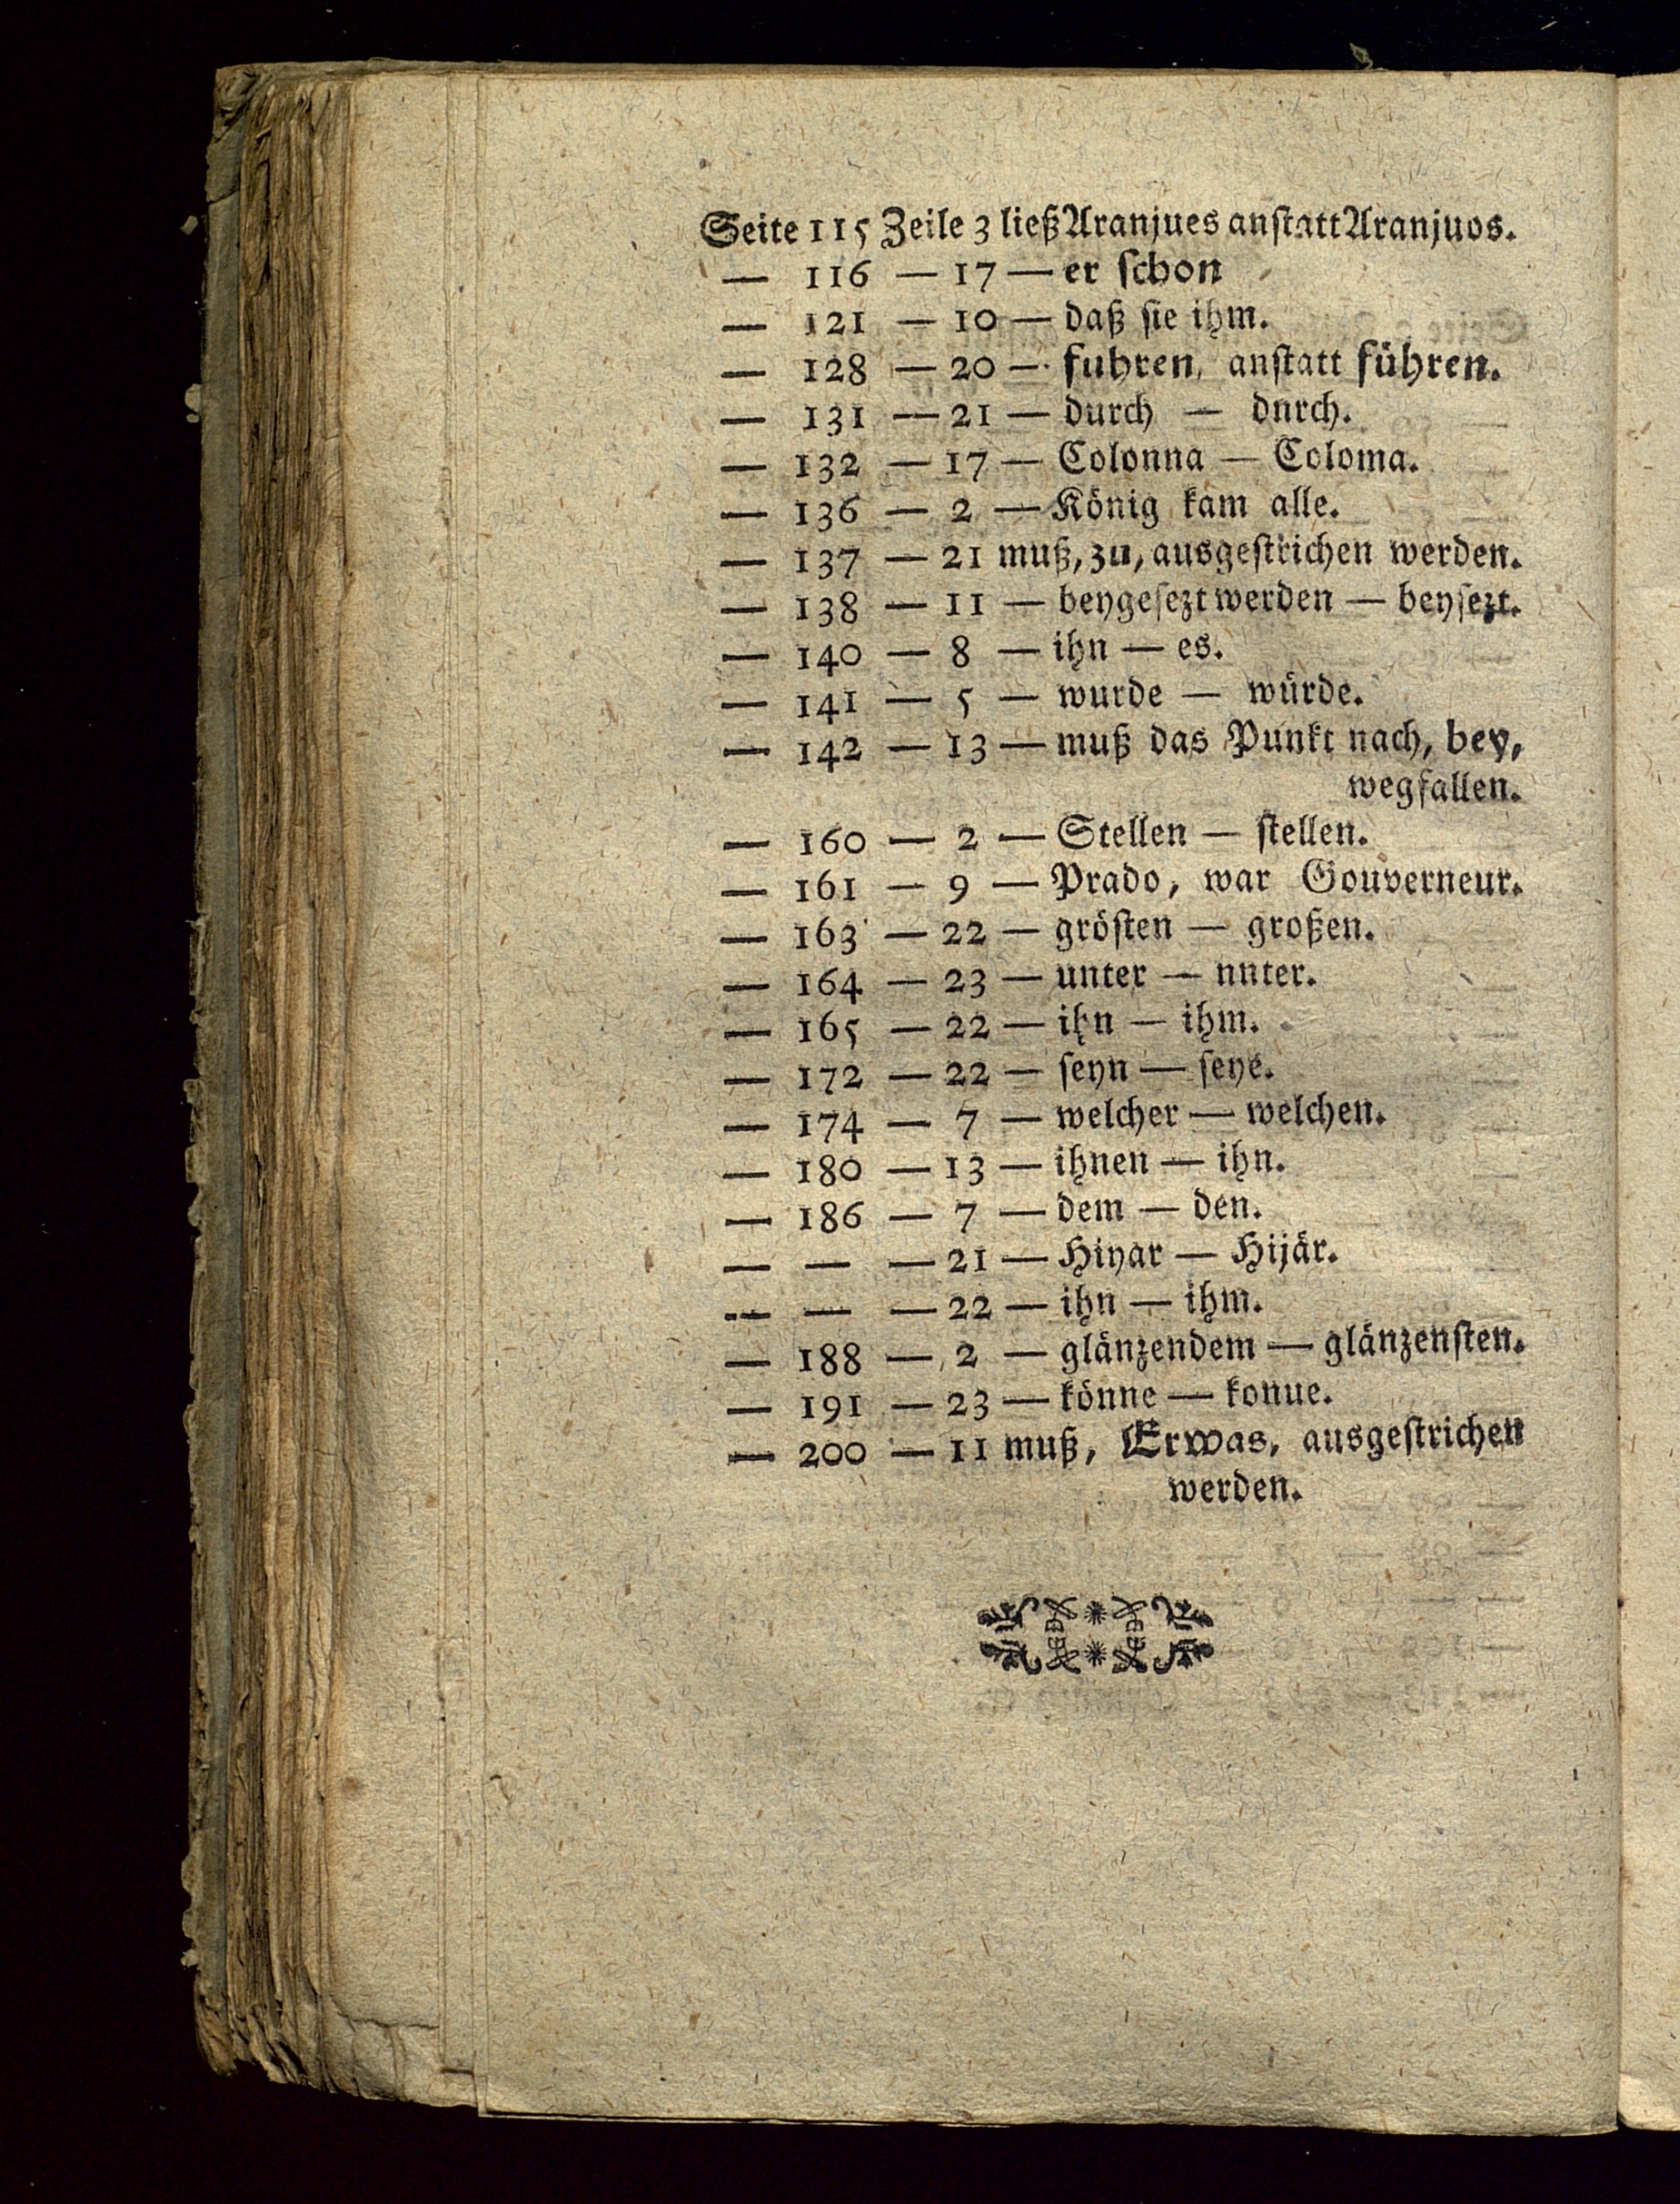 Seite 115 Zeile 3 ließ Aranjues anstatt Aranjuos.
— 116 — 17 — er schon
— 121 — 10 — daß sie ihm.
— 128 — 20 — fuhren, anstatt führen.
— 131 — 21 — durch — dnrch.
— 132 — 17 — Colonna — Coloma.
— 136 — 2 — König kam alle.
— 137 — 21 muß, zu, ausgestrichen werden.
— 138 — 11 — beygesezt werden — beysezt.
— 140 — 8 — ihn — es.
— 141 — 5 — wurde — würde.
— 142 — 13 — muß das Punkt nach, bey,
wegfallen.
— 160 — 2 — Stellen — stellen.
— 161 — 9 — Prado, war Gouverneur.
— 163 — 22 — grösten — großen.
— 164 — 23 — unter — nnter.
— 165 — 22 — ihn — ihm.
— 172 — 22 — seyn — seye.
— 174 — 7 — welcher — welchen.
— 180 — 13 — ihnen — ihn.
— 186 — 7 — dem — den.
— — — 21 — Hiyar — Hijär.
— — — 22 — ihn — ihm.
— 188 — 2 — glänzendem — glänzensten.
— 191 — 23 — könne — konue.
— 200 — 11 muß, Erwas, ausgestrichen
werden.